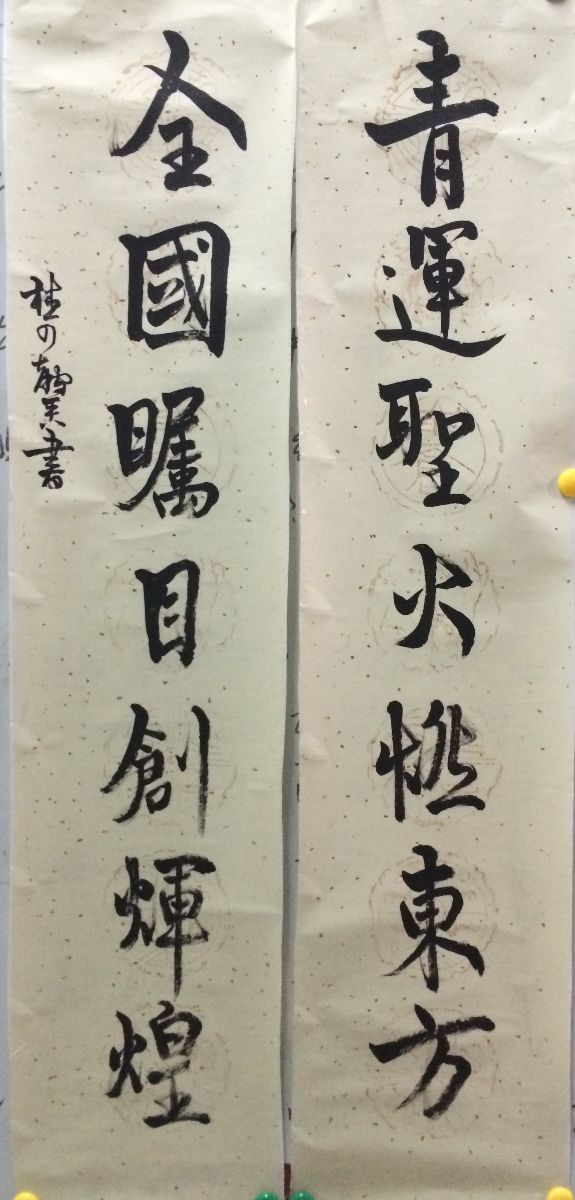 青運聖火燃東方
全國矚目創輝煌
書